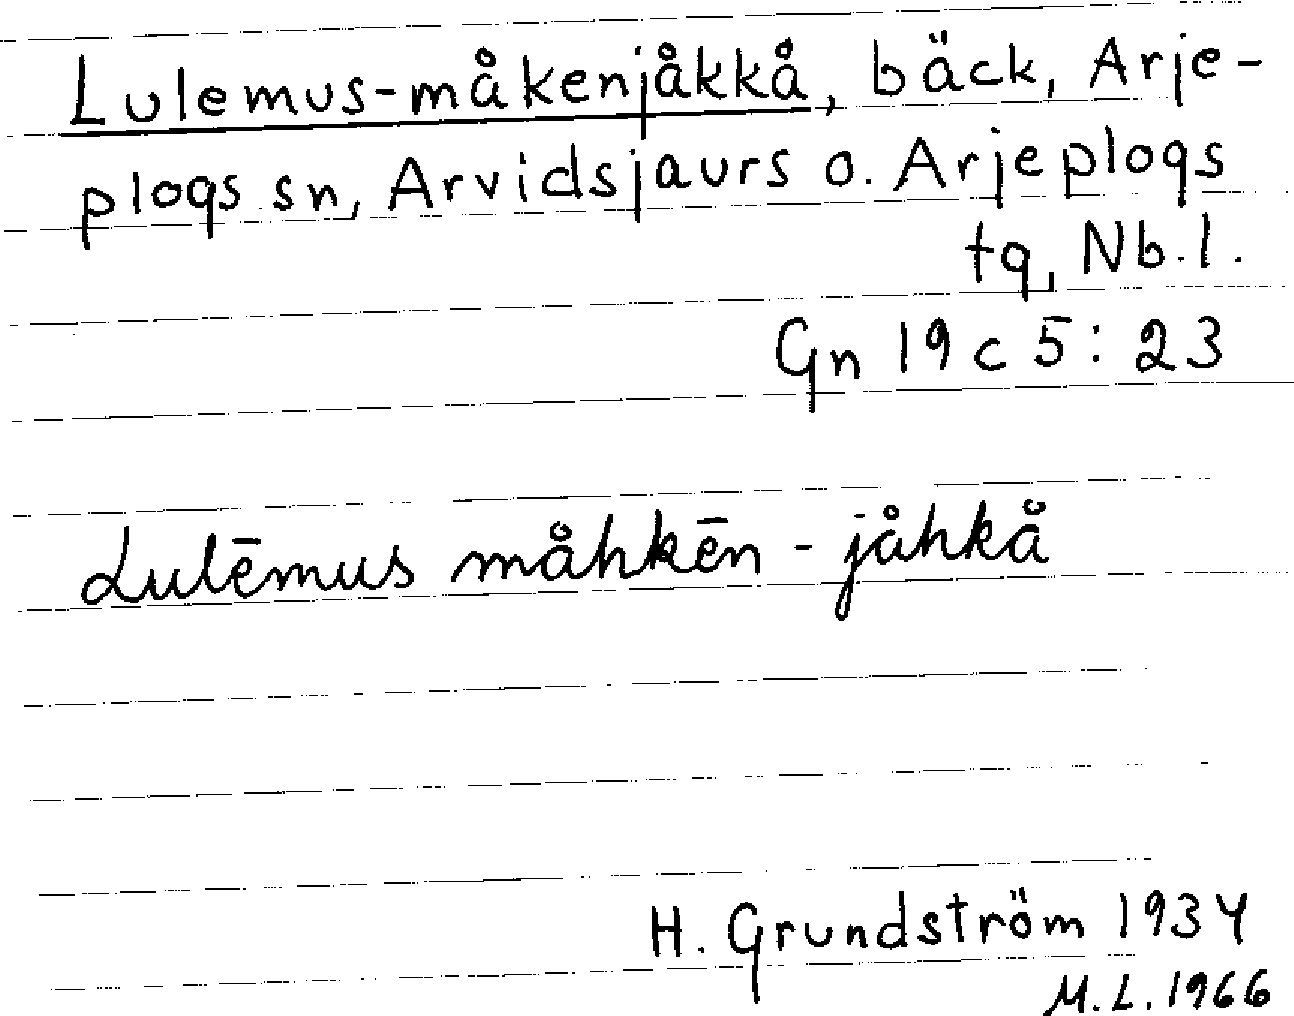 Lulemus-måkenjåkkå, bäck, Arje-
plogs sn, Arvidsjaurs o. Arjeplogs
tg, Nb.l.
Gn 19 c 5:23
Lulēmus måhkēn-jåhkå
H. Grundström 1934
M.L. 1966